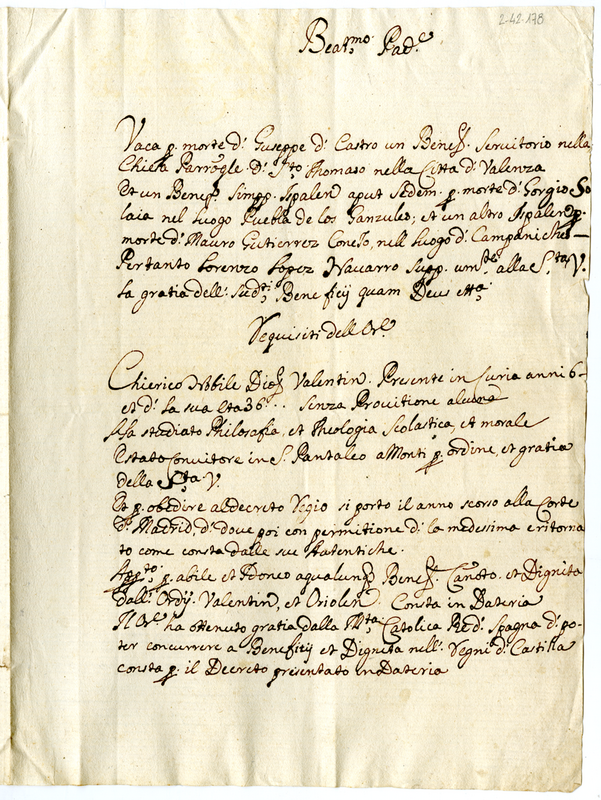 2-42-178
Beat.mo Pad.e
Vaca p. morte d'. Guseppe d'. Castro un Benef. Servitorio nella
Chiesa Parrogle. d'. S.to Thomaso nella Citta d'. Valenza
Et un Benef. Simpp. Ispalen aput Sedem. p. morte d'. Gorgio So
laia nel luogo Puebla de los Ganzules; et un altro Ispalen p.
morte d'. Mauro Gutierrez nell luogo d'. Campaniches
Pertanto Lorenzo Lopez Navarro Supp. um.te alla S.ta V.
la gratia dell'. Sud.ti Beneficij quam Deus etta.
Requisiti dell Or.e
Chierico Nobile Dioz. Valentin. Presente in Curia anni 6
et d'. la sua Eta 36... Senza Provitione alcuna
ha studiato Philosofia, et Theologia Scolastica, et morale
Estato Convitore in S. Pantaleo a Monti p. ordine, et gratia
della S.ta V.
Et p. obedire al decreto Regio si porto il anno scorso alla Corte
d'. Madrid, d'. dove poi con permitione d'. la medesima e ritorna
to come consta dalle sue Autentiche.
App.to p. abile et Idoneo aqualunq. Benef. Canoto. et Dignita
dall'. Ordij. Valentin, et Oriolen. Consta in Dateria
Il Or.e ha ottenuto gratia dalla M.ta Catolica Re d'. Spagna d'. po-
ter concurrere a Beneficij et Dignita nell'. Regni d'. Castilia
consta p. il Decreto presentato in Dateria